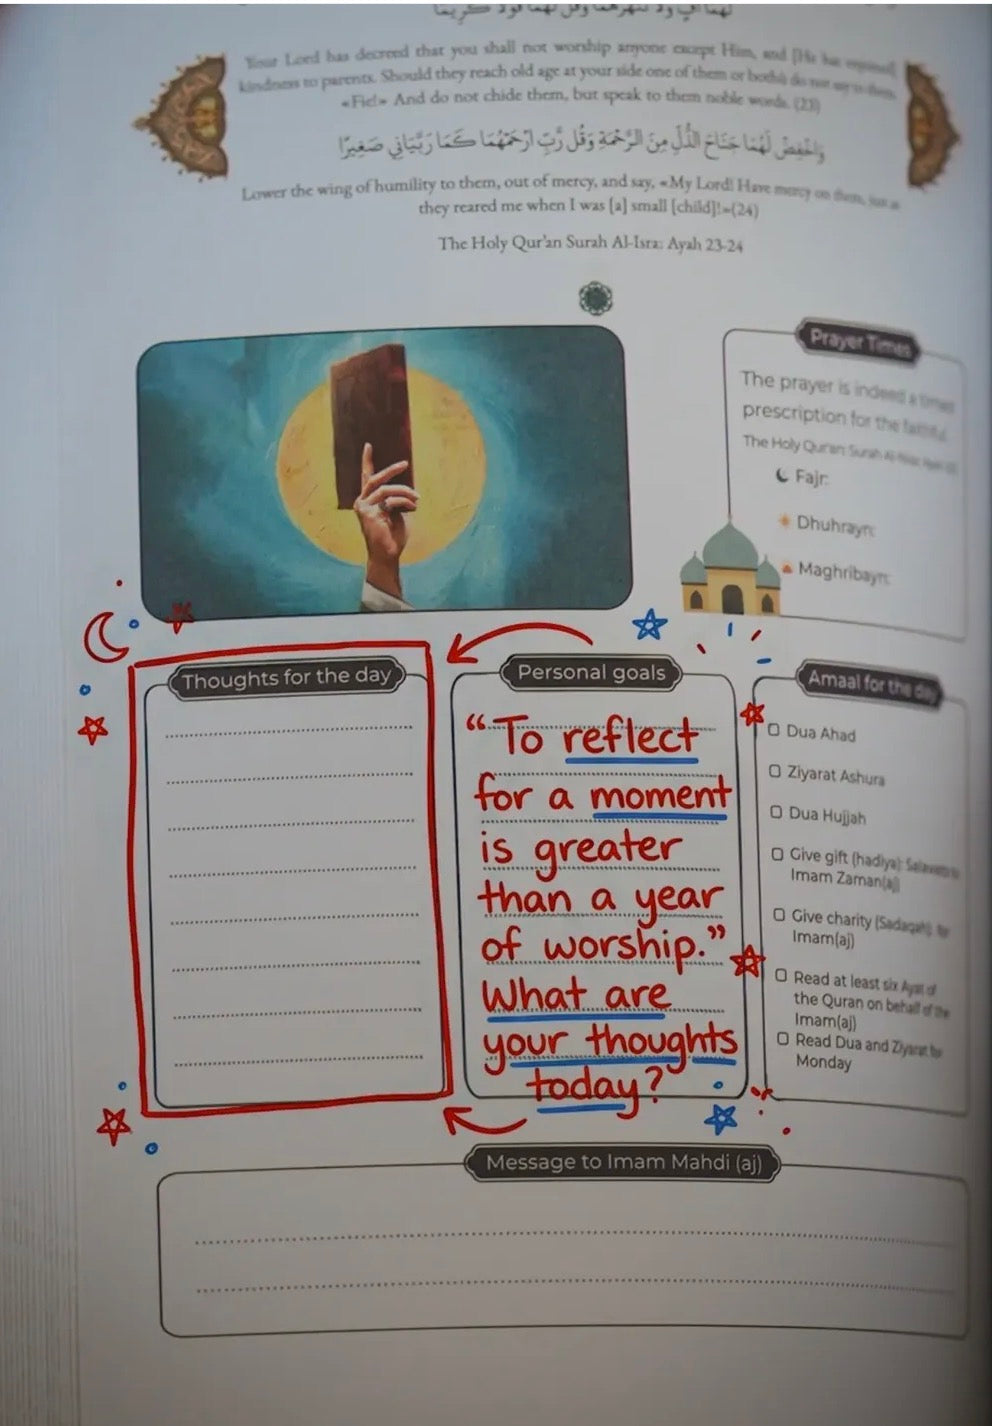 Your Lord has decreed that you shall not worship anyone except Him, and [He has enjoined]
kindness to parents. Should they reach old age at your side one of them or both do not say to them,
«Fie!» And do not chide them, but speak to them noble words. (23)
وَاخْفِضْ لَهُمَا جَنَاحَ الذُّلِّ مِنَ الرَّحْمَةِ وَقُل رَّبِّ ارْحَمْهُمَا كَمَا رَبَّيَانِي صَغِيرًا
Lower the wing of humility to them, out of mercy, and say, «My Lord! Have mercy on them, just as
they reared me when I was [a] small [child]!»(24)
The Holy Qur'an Surah Al-Isra: Ayah 23-24
Prayer Times
The prayer is indeed a timed
prescription for the faithful.
The Holy Qur'an: Surah
Fajr:
Dhuhrayn:
Maghribayn:
Thoughts for the day
Personal goals
“To reflect
for a moment
is greater
than a year
of worship.”
What are
your thoughts
today?
Amaal for the day
Dua Ahad
Ziyarat Ashura
Dua Hujjah
Give gift (hadiya): Salawats to
Imam Zaman(aj)
Give charity (Sadaqah): for
Imam(aj)
Read at least six Ayat of
the Quran on behalf of the
Imam(aj)
Read Dua and Ziyarat for
Monday
Message to Imam Mahdi (aj)